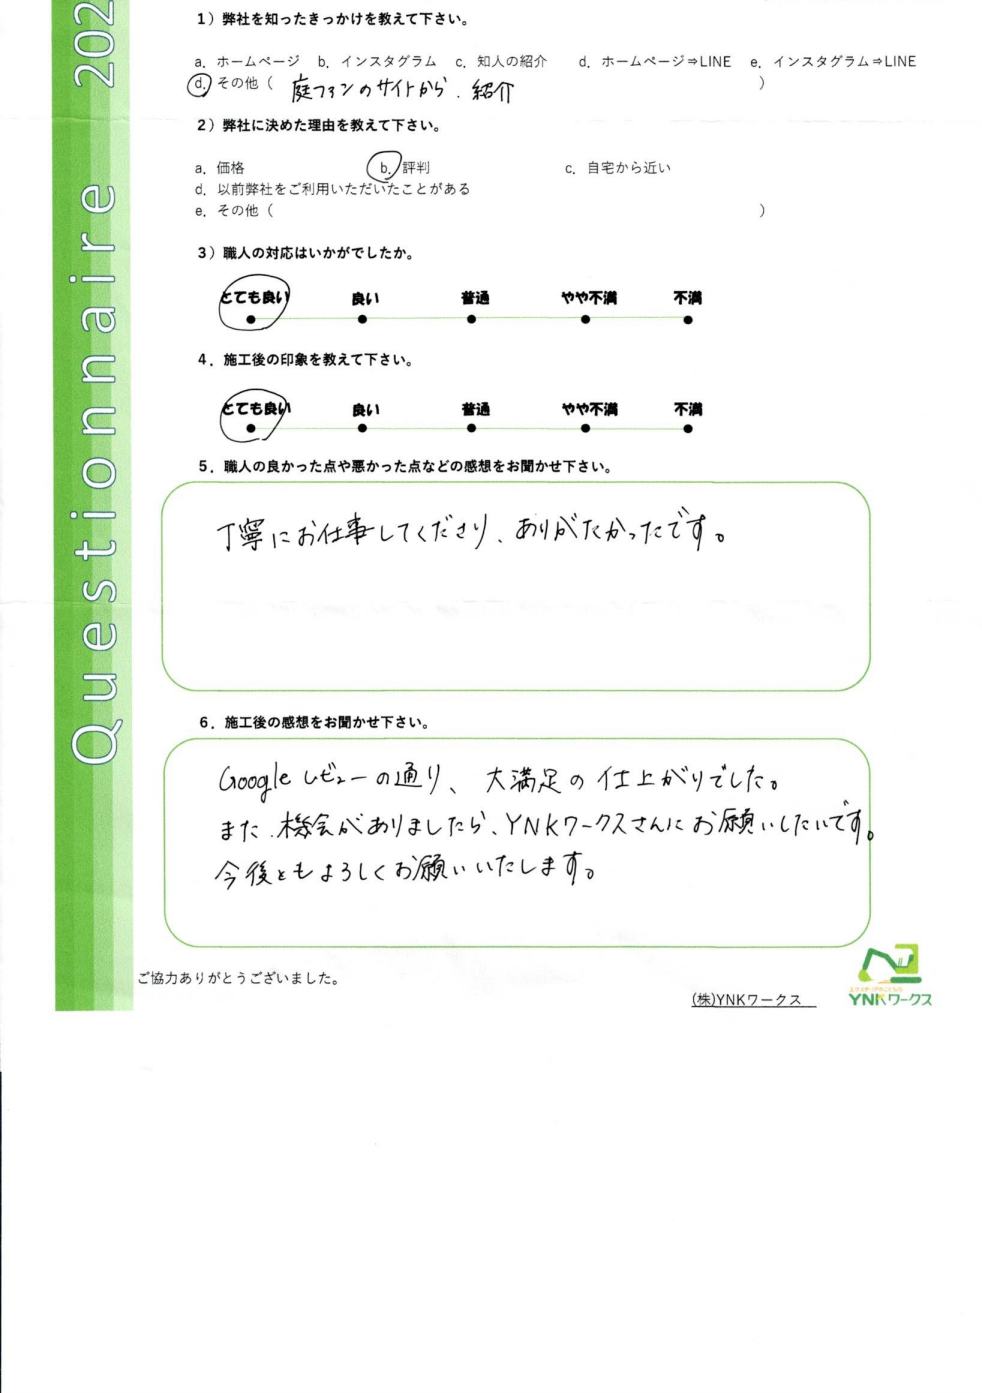 Questionnaire 202
1）弊社を知ったきっかけを教えて下さい。
a. ホームページ b. インスタグラム c. 知人の紹介 d. ホームページ⇒LINE e. インスタグラム⇒LINE
d. その他（ 庭ファンのサイトから、紹介 ）
2）弊社に決めた理由を教えて下さい。
a. 価格 b. 評判 c. 自宅から近い
d. 以前弊社をご利用いただいたことがある
e. その他（ ）
3）職人の対応はいかがでしたか。
とても良い 良い 普通 やや不満 不満
4．施工後の印象を教えて下さい。
とても良い 良い 普通 やや不満 不満
5．職人の良かった点や悪かった点などの感想をお聞かせ下さい。
丁寧にお仕事してくださり、ありがたかったです。
6．施工後の感想をお聞かせ下さい。
Googleレビューの通り、大満足の仕上がりでした。
また、機会がありましたら、YNKワークスさんにお願いしたいです。
今後ともよろしくお願いいたします。
ご協力ありがとうございました。
(株)YNKワークス
YNKワークス